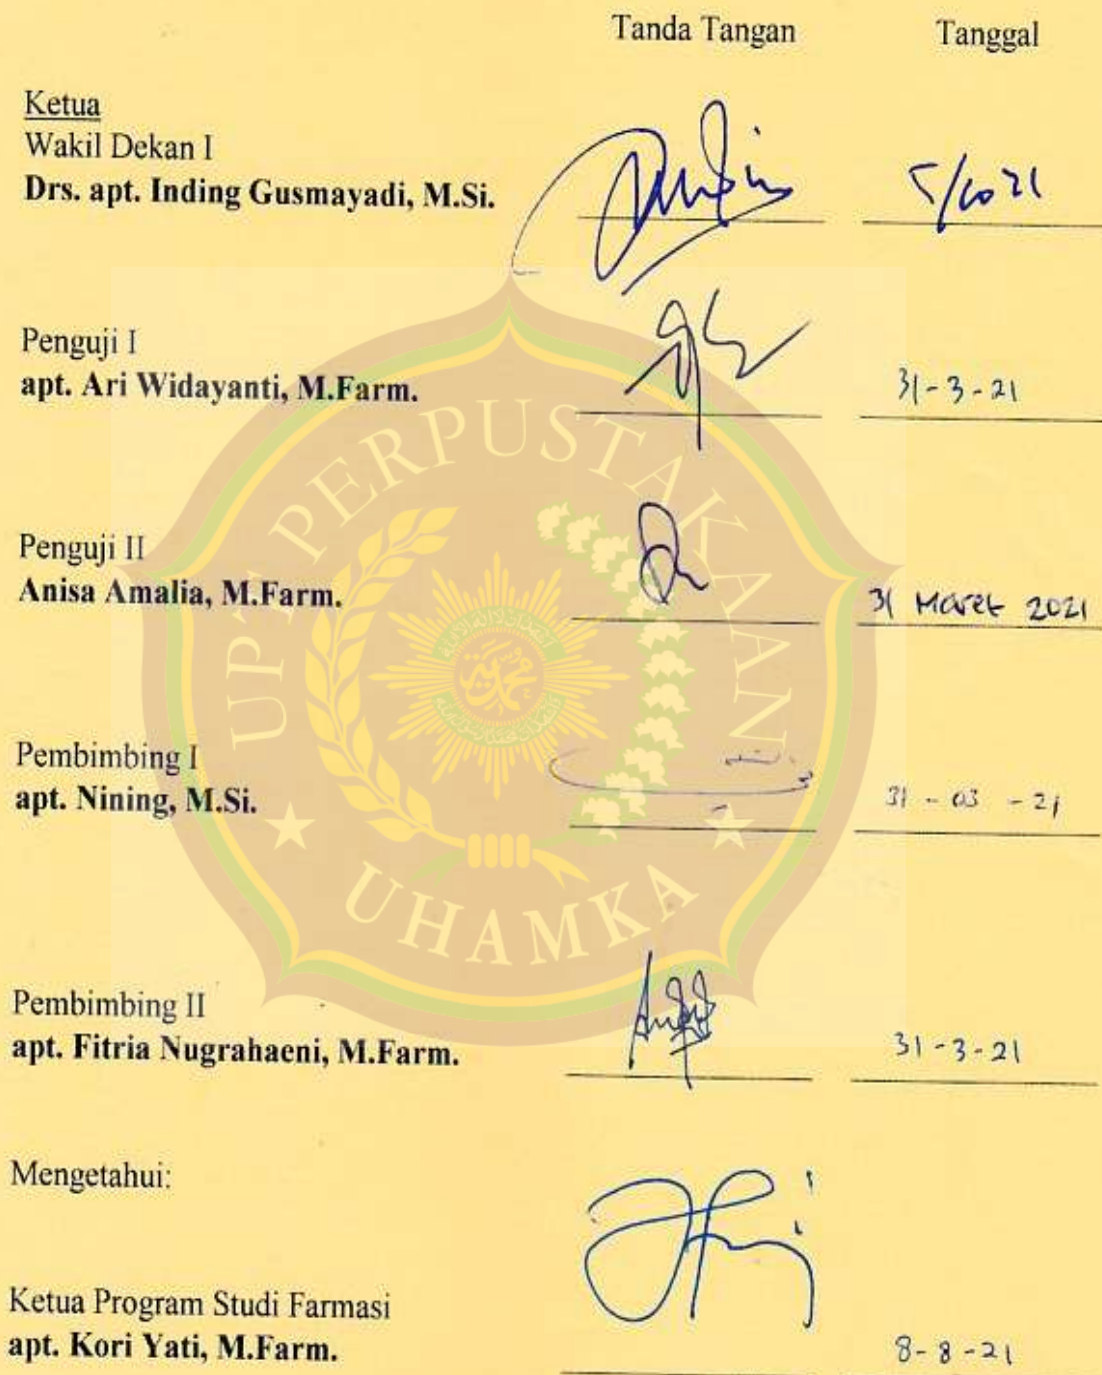 Tanda Tangan Tanggal
Ketua
Wakil Dekan I
Drs. apt. Inding Gusmayadi, M.Si.
Penguji I
apt. Ari Widayanti, M.Farm. 31-3-21
Penguji II
Anisa Amalia, M.Farm. 31 Maret 2021
Pembimbing I
apt. Nining, M.Si. 31 - 03 - 21
Pembimbing II
apt. Fitria Nugrahaeni, M.Farm. 31-3-21
Mengetahui:
Ketua Program Studi Farmasi
apt. Kori Yati, M.Farm. 8-8-21
UPT PERPUSTAKAAN
UHAMKA